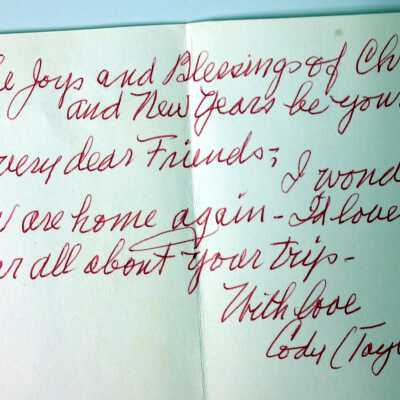 e Joys and Blessings of Ch
and New Years be your
very dear Friends;
I wond
are home again - I'd love
r all about your trip-
With love
Cody (Tay